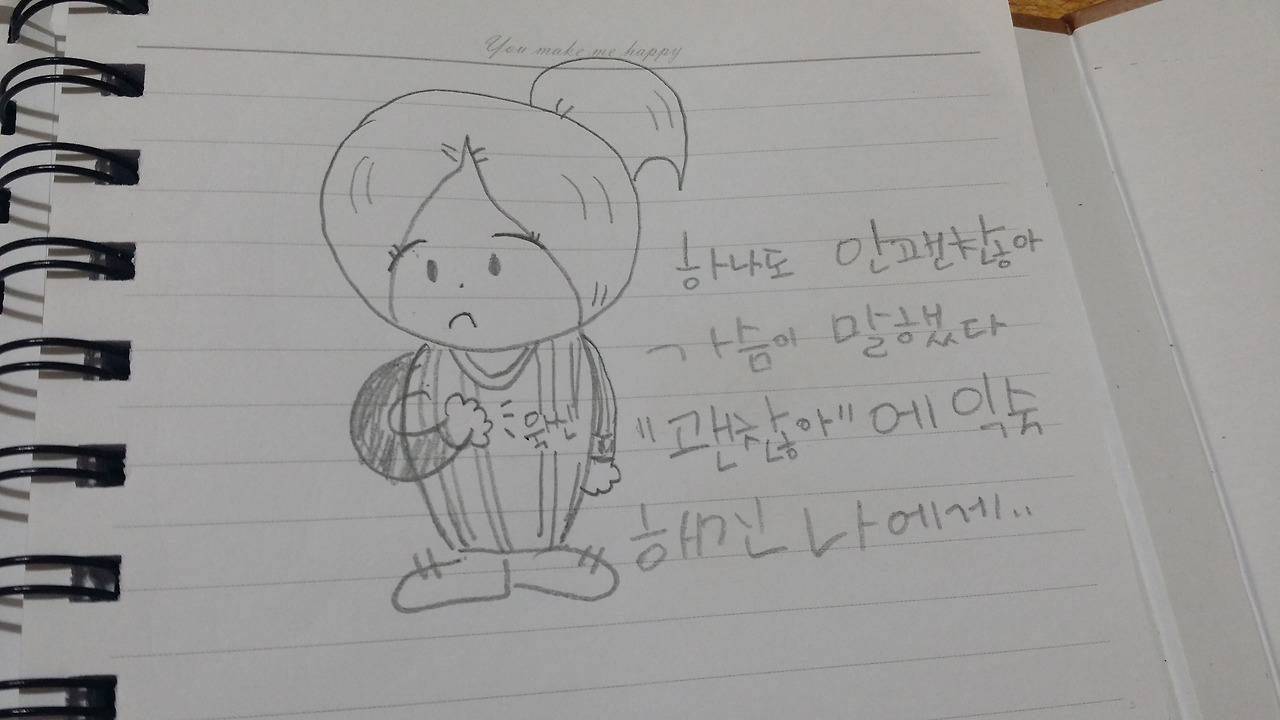 You make me happy
하나도 안괜찮아
가슴이 말했다
"괜찮아"에 익숙
해진 나에게..